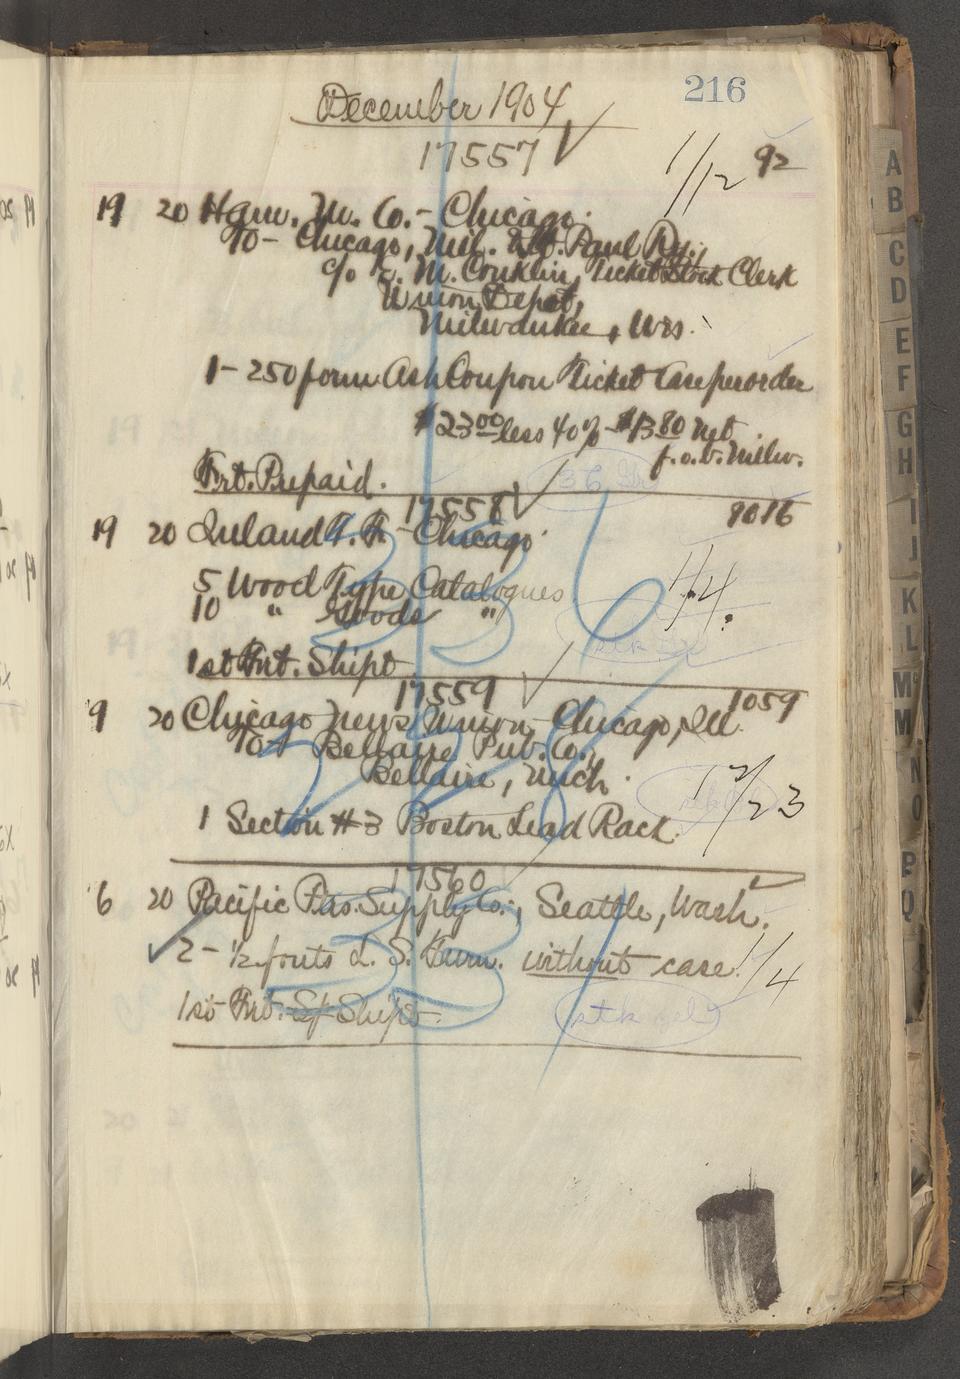 216
December 1904
17557
1/12 92
19 20 Ham. M. Co. - Chicago.
To - Chicago, Mil. & St. Paul Ry.,
c/o E. M. Conklin, Ticket Stock Clerk
Union Depot,
Milwaukee, Wis.
1 - 250 form Ash Coupon Ticket Case per order
$23.00 less 40% - $13.80 net
f.o.b. Milw.
Frt. Prepaid.
17558
1016
19 20 Inland T. F. - Chicago
5 Wood Type Catalogues
10 " Goods "
1/4
1st Frt. Shipt
17559
1059
9 20 Chicago News Union, Chicago, Ill.
To Bellaire Pub. Co.,
Bellaire, Mich.
12/23
1 Section #3 Boston Lead Rack.
17560
6 20 Pacific Ptrs. Supply Co., Seattle, Wash.
2 - 1/2 fonts L. S. Furn. without case.
1/4
1st Frt. Shipt.
stk
A
B
C
D
E
F
G
H
I
J
K
L
M
M
N
O
P
Q